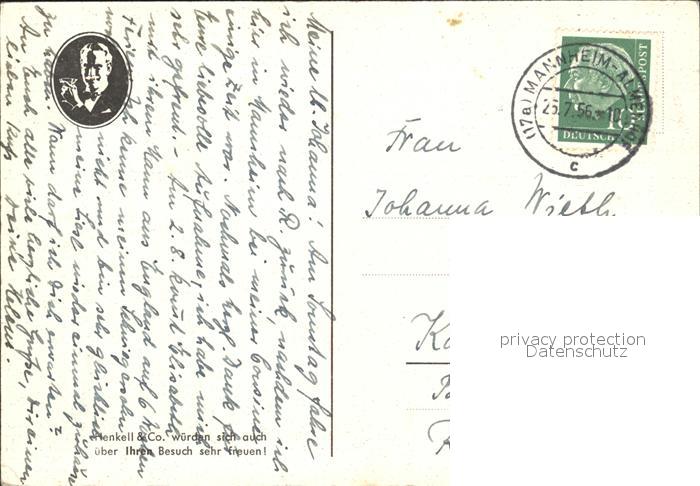 Meine lb. Johanna! Am Sonntag fahre
ich wieder nach R. zurück, nachdem ich
hier in Mannheim bei meiner Cousine
einige Zeit war. Nochmals herzl. Dank für
Eure liebevolle Aufnahme, ich habe mich
sehr gefreut. - Am 2.8. kommt Elisabeth
mit ihrem Mann aus England auf 6 Wochen
Ferien. Ich kenne meinen Schwiegersohn
noch nicht und bin sehr glücklich
meine Liesl wieder einmal zuhause
zu haben. Wann darf ich Dich erwarten?
An Euch alle viele herzliche Grüße, Dir einen
lieben Kuss
Deine
Henkell & Co. würden sich auch
über Ihren Besuch sehr freuen!
(17a) MANNHEIM-
25.7.56
c
10
DEUTSCHE
POST
Frau
Johanna
privacy protection
Datenschutz